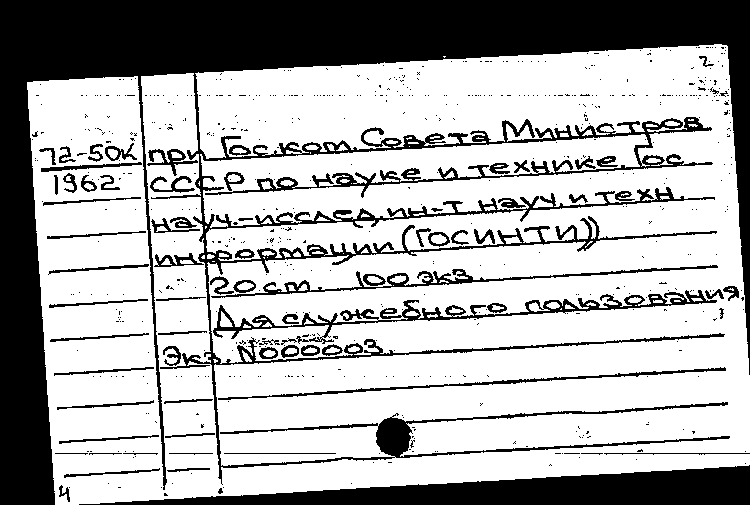 2
72-50к при Гос.ком. Совета Министров
1962 СССР по науке и технике. Гос.
науч.-исслед. ин-т науч. и техн.
информации (ГОСИНТИ))
20 см. 100 экз.
Для служебного пользования.
Экз. N000003.
4